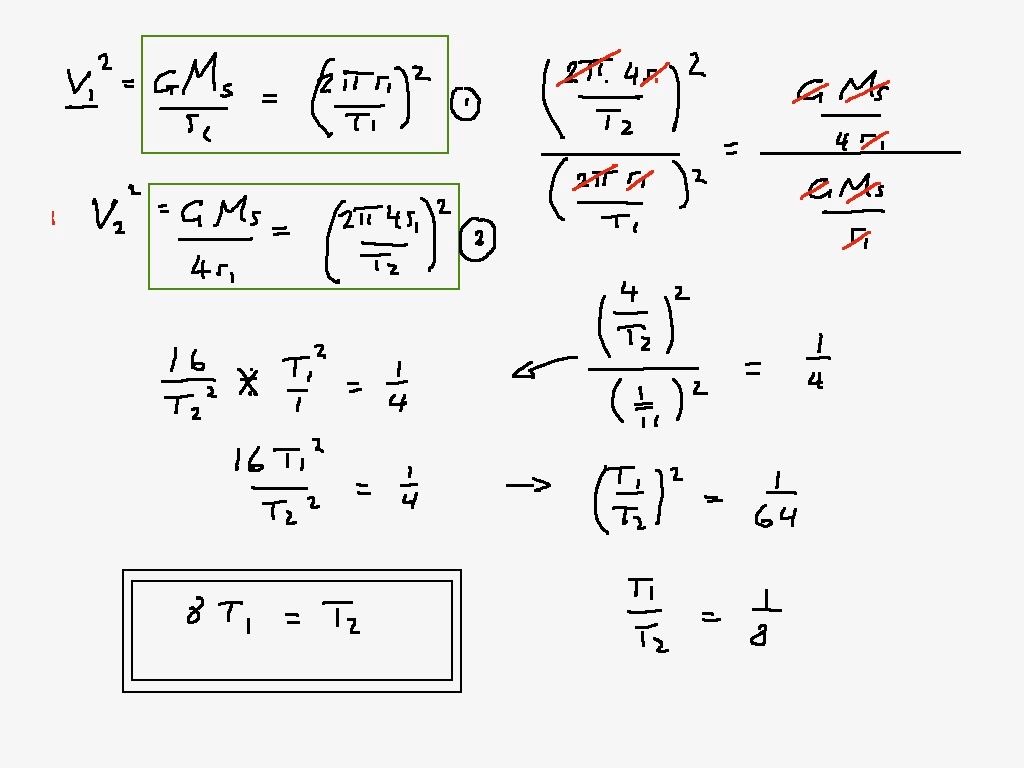 V₁² = G Ms / r₁ = (2π r₁ / T₁)² ①
V₂² = G Ms / 4r₁ = (2π 4r₁ / T₂)² ②
(2π. 4r₁ / T₂)² / (2π r₁ / T₁)² = (G Ms / 4 r₁) / (G Ms / r₁)
(4 / T₂)² / (1 / T₁)² = 1/4
16 / T₂² × T₁² / 1 = 1/4
16 T₁² / T₂² = 1/4 → (T₁ / T₂)² = 1/64
T₁ / T₂ = 1/8
8 T₁ = T₂